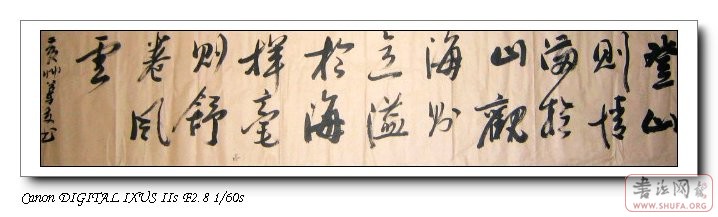 登山
则情
满於
山觀
海则
意溢
於海
挥毫
则舒
卷风
雲
Canon DIGITAL IXUS IIs F2.8 1/60s
WWW.SHUFA.ORG